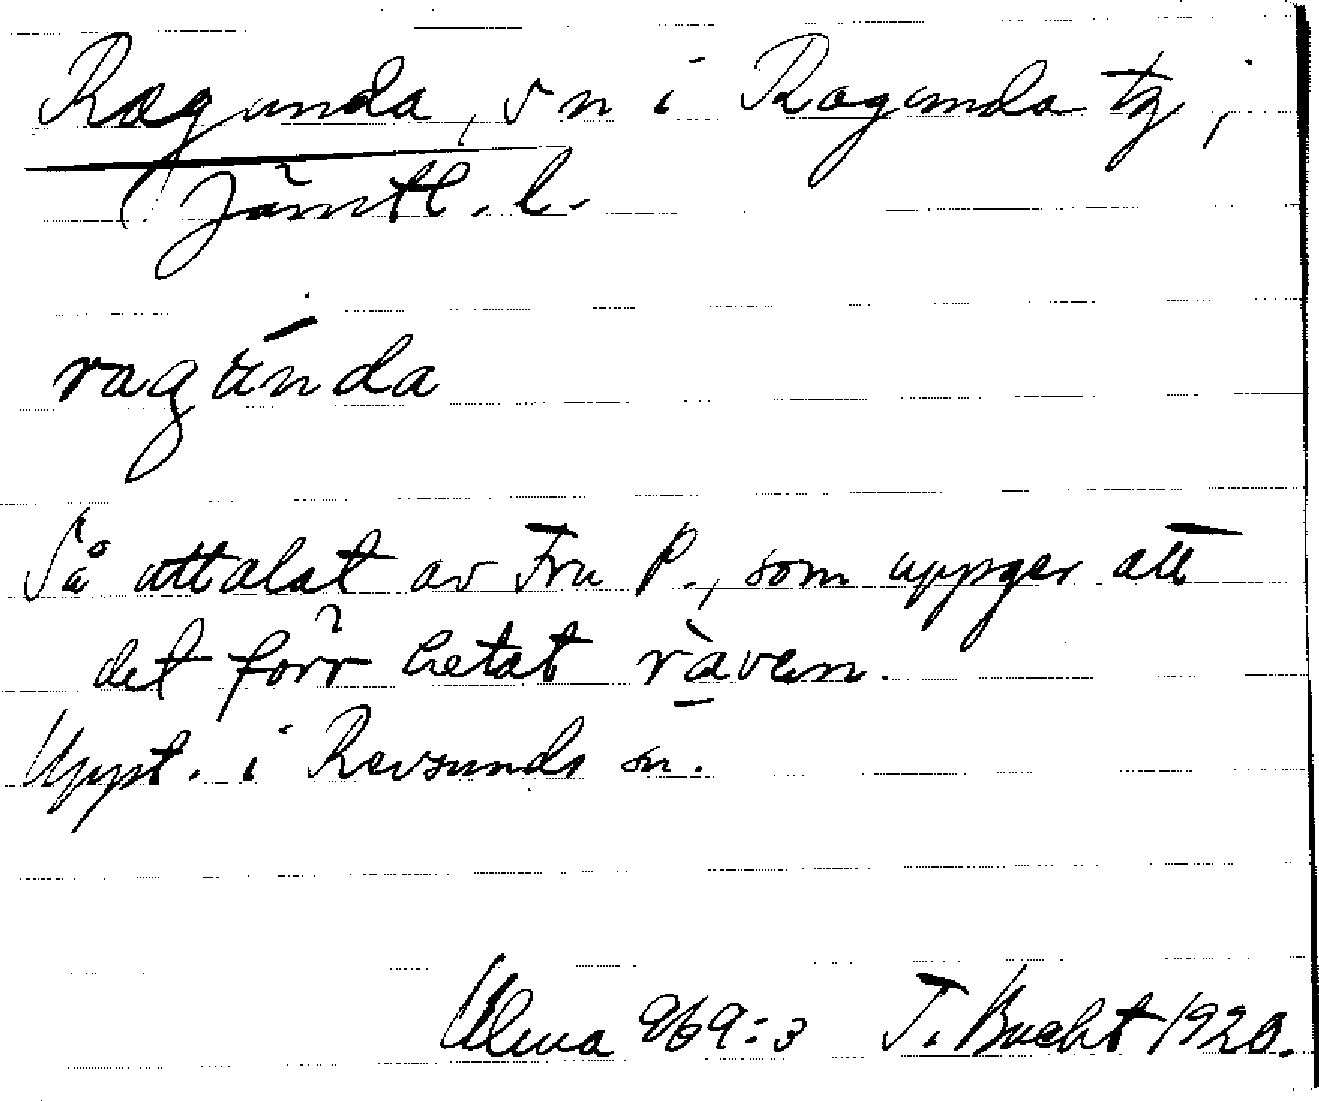 Ragunda, sn i Ragunda tg,
Jämtl. l.
ragúnda
Så uttalat av Fru P., som uppger att
det förr hetat ràven.
Uppt. i Revsunds sn.
Ulma 969:3 T. Bucht 1920.